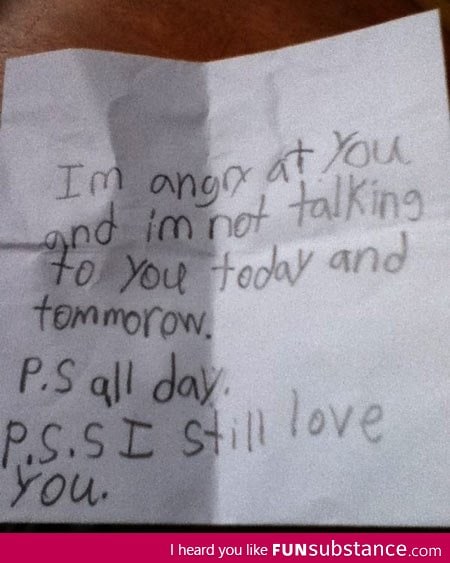 Im angry at you
and im not talking
to you today and
tommorow.
P.S all day.
P.S.S I still love
you.
I heard you like FUNsubstance.com